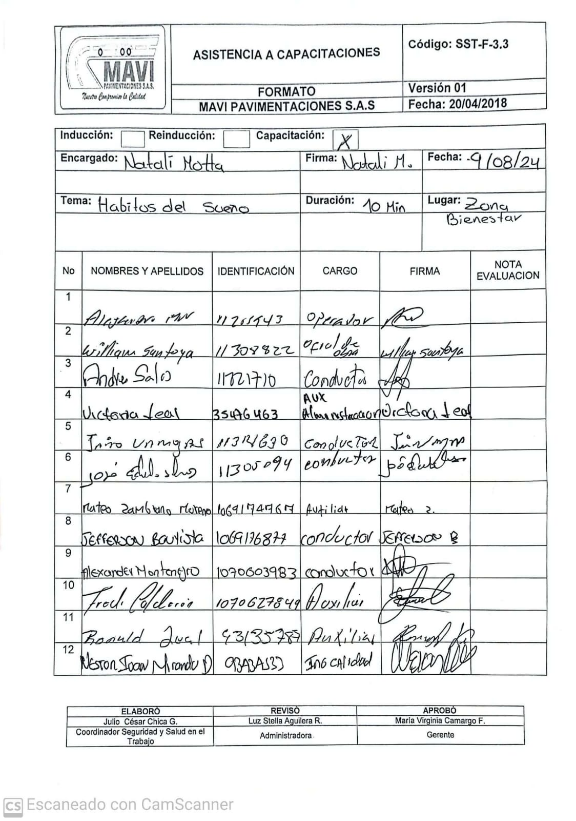 MAVI
PAVIMENTACIONES S.A.S.
Nuestro Compromiso la Calidad
ASISTENCIA A CAPACITACIONES
Código: SST-F-3.3
FORMATO
Versión 01
MAVI PAVIMENTACIONES S.A.S
Fecha: 20/04/2018
Inducción: Reinducción: Capacitación: X
Encargado: Natalí Motta Firma: Natali M. Fecha: 9/08/24
Tema: Habitos del Sueño Duración: 10 Min Lugar: Zona
Bienestar
No NOMBRES Y APELLIDOS IDENTIFICACIÓN CARGO FIRMA NOTA EVALUACION
1 Operador
2 William Santoya 11308822 oficial de obra William Santoya
3 Andres Salas 11221710 Conductor
4 Victoria Leal 35476463 AUX Administracion Victoria Leal
5 conductor
6 José 11305094 conductor
7 Mateo Zambrano Moreno 1069174767 Auxiliar Mateo Z.
8 JEFFERSON Bautista 1069176877 conductor JEFFERSON B
9 Alexander Montenegro 1070603983 conductor
10 Fredi Calderón 1070627849 Auxiliar
11 Ronald 93135787 Auxiliar
12 Nestor Ivan Miranda D Ing calidad
ELABORÓ REVISÓ APROBÓ
Julio César Chica G. Luz Stella Aguilera R. Maria Virginia Camargo F.
Coordinador Seguridad y Salud en el Trabajo Administradora Gerente
CS Escaneado con CamScanner